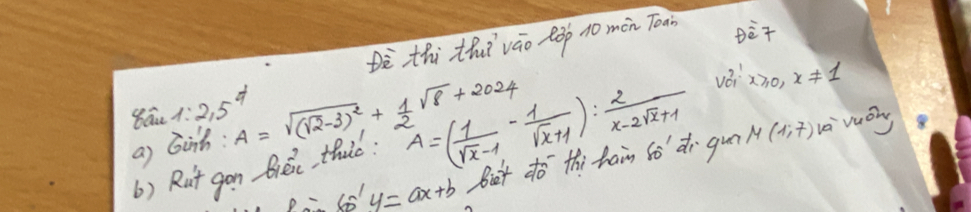 Đề thi thử vào lớp 10 môn Toán Đề 7
Câu 1: 2,5đ
a) Tính: A = √((√2-3)²) + 1/2 √8 + 2024
b) Rút gọn biểu thức: A = (1/(√x-1) - 1/(√x+1)) : 2/(x-2√x+1) với x≥0, x≠1
số y = ax+b biết đồ thị hàm số đi qua M (1;7) và vuông